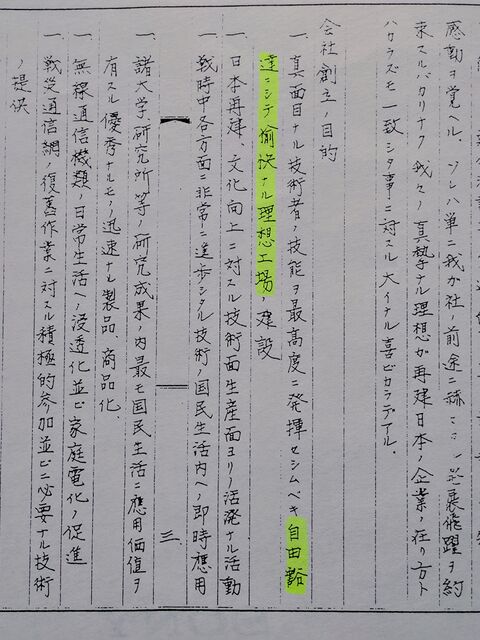 感動ヲ覚ヘル、ソレハ単ニ我ガ社ノ前途ニ 発展飛躍ヲ約
束スルバカリナク我々ノ真摯ナル理想ガ再建日本ノ企業ノ在リ方ト
ハカラズモ一致シタ事ニ対スル大イナル喜ビカラデアル。
会社創立ノ目的
一、真面目ナル技術者ノ技能ヲ最高度ニ発揮セシムベキ自由豁
達ニシテ愉快ナル理想工場ノ建設
一、日本再建、文化向上ニ対スル技術面生産面ヨリノ活発ナル活動
一、戦時中各方面ニ非常ニ進歩シタル技術ノ国民生活内ヘノ即時應用
三
一、諸大学、研究所等ノ研究成果ノ内最モ国民生活ニ應用価値ヲ
有スル優秀ナルモノノ迅速ナル製品、商品化、
一、無線通信機類ノ日常生活ヘノ浸透化並ビニ家庭電化ノ促進
一、戦災通信網ノ復旧作業ニ対スル積極的参加並ビニ必要ナル技術
ノ提供